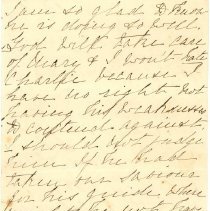 I am so glad
is doing so well.
God will take care
of Mary & I won't hate
Charlie because I
have no right not
having his weaknesses
to contend against.
I should not judge
him if he had
taken our Saviour
for his guide